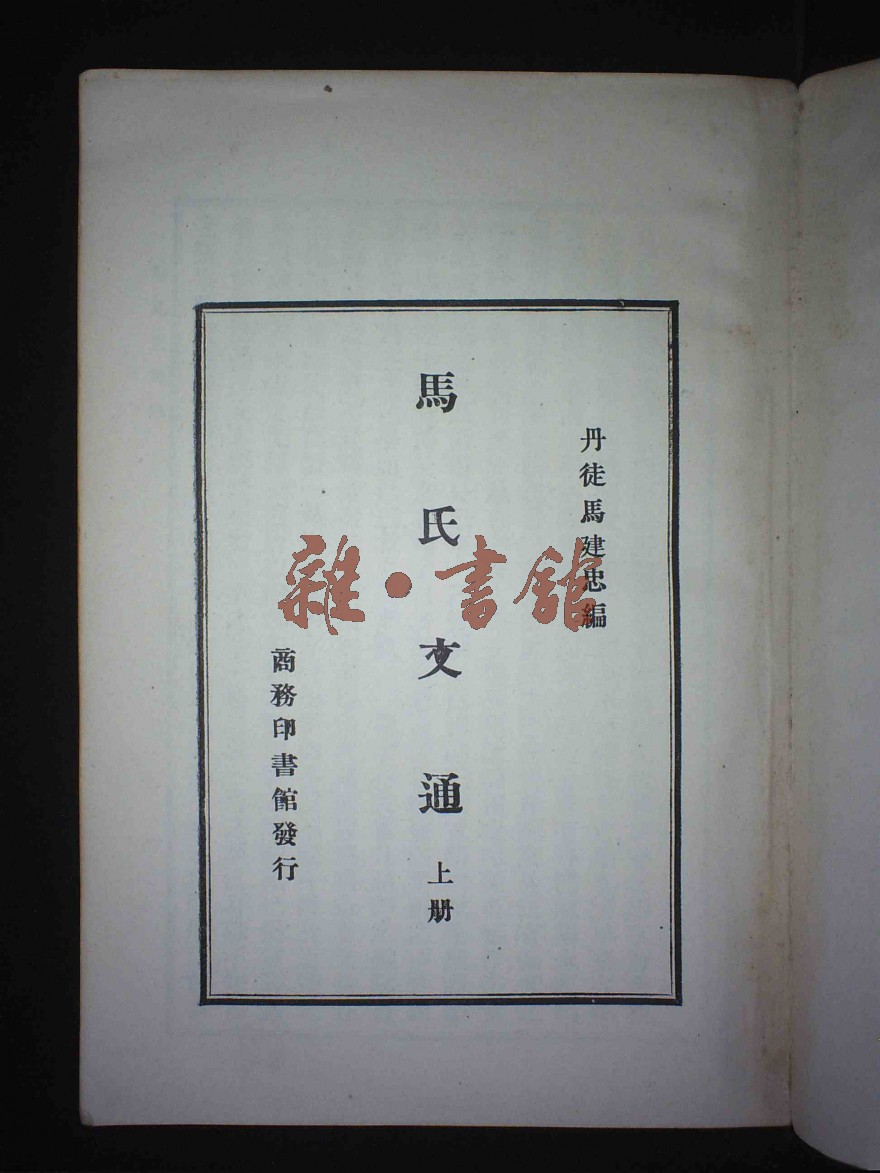 丹徒馬建忠編
馬氏文通上册
商務印書館發行
雜·書館